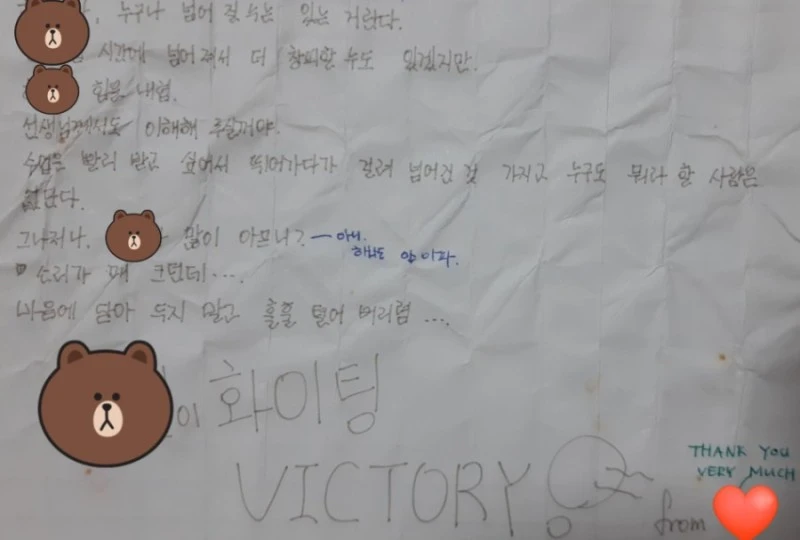 누구나 넘어 질 수는 있는 거란다.
시간에 넘어져서 더 창피할 수도 있겠지만.
힘을 내렴.
선생님께서도 이해해 주실꺼야.
수업을 빨리 받고 싶어서 뛰어가다가 걸려 넘어진 것 가지고 누구도 뭐라 할 사람은
없단다.
그나저나, 많이 아프니? — 아니.
하나도 안 아파.
소리가 꽤 크던데….
마음에 담아 두지 말고 훌훌 털어 버리렴 ….
이 화이팅
VICTORY
THANK YOU
VERY MUCH
from